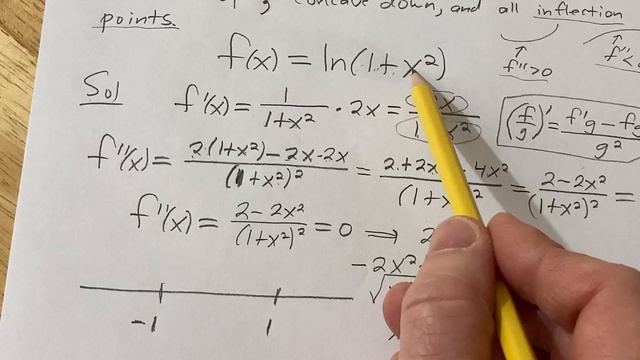 concave down, and all inflection
points.
f'' > 0
f(x) = ln(1 + x²)
Sol f'(x) = 1/(1+x²) · 2x =
(f/g)' = f'g - fg
g²
f''(x) = 2·(1+x²) - 2x·2x/(1+x²)² = 2+2x - 4x²/(1+x²)² = 2-2x²/(1+x²)² =
f''(x) = 2-2x²/(1+x²)² = 0 ⟹ 2
-2x²
-1 1